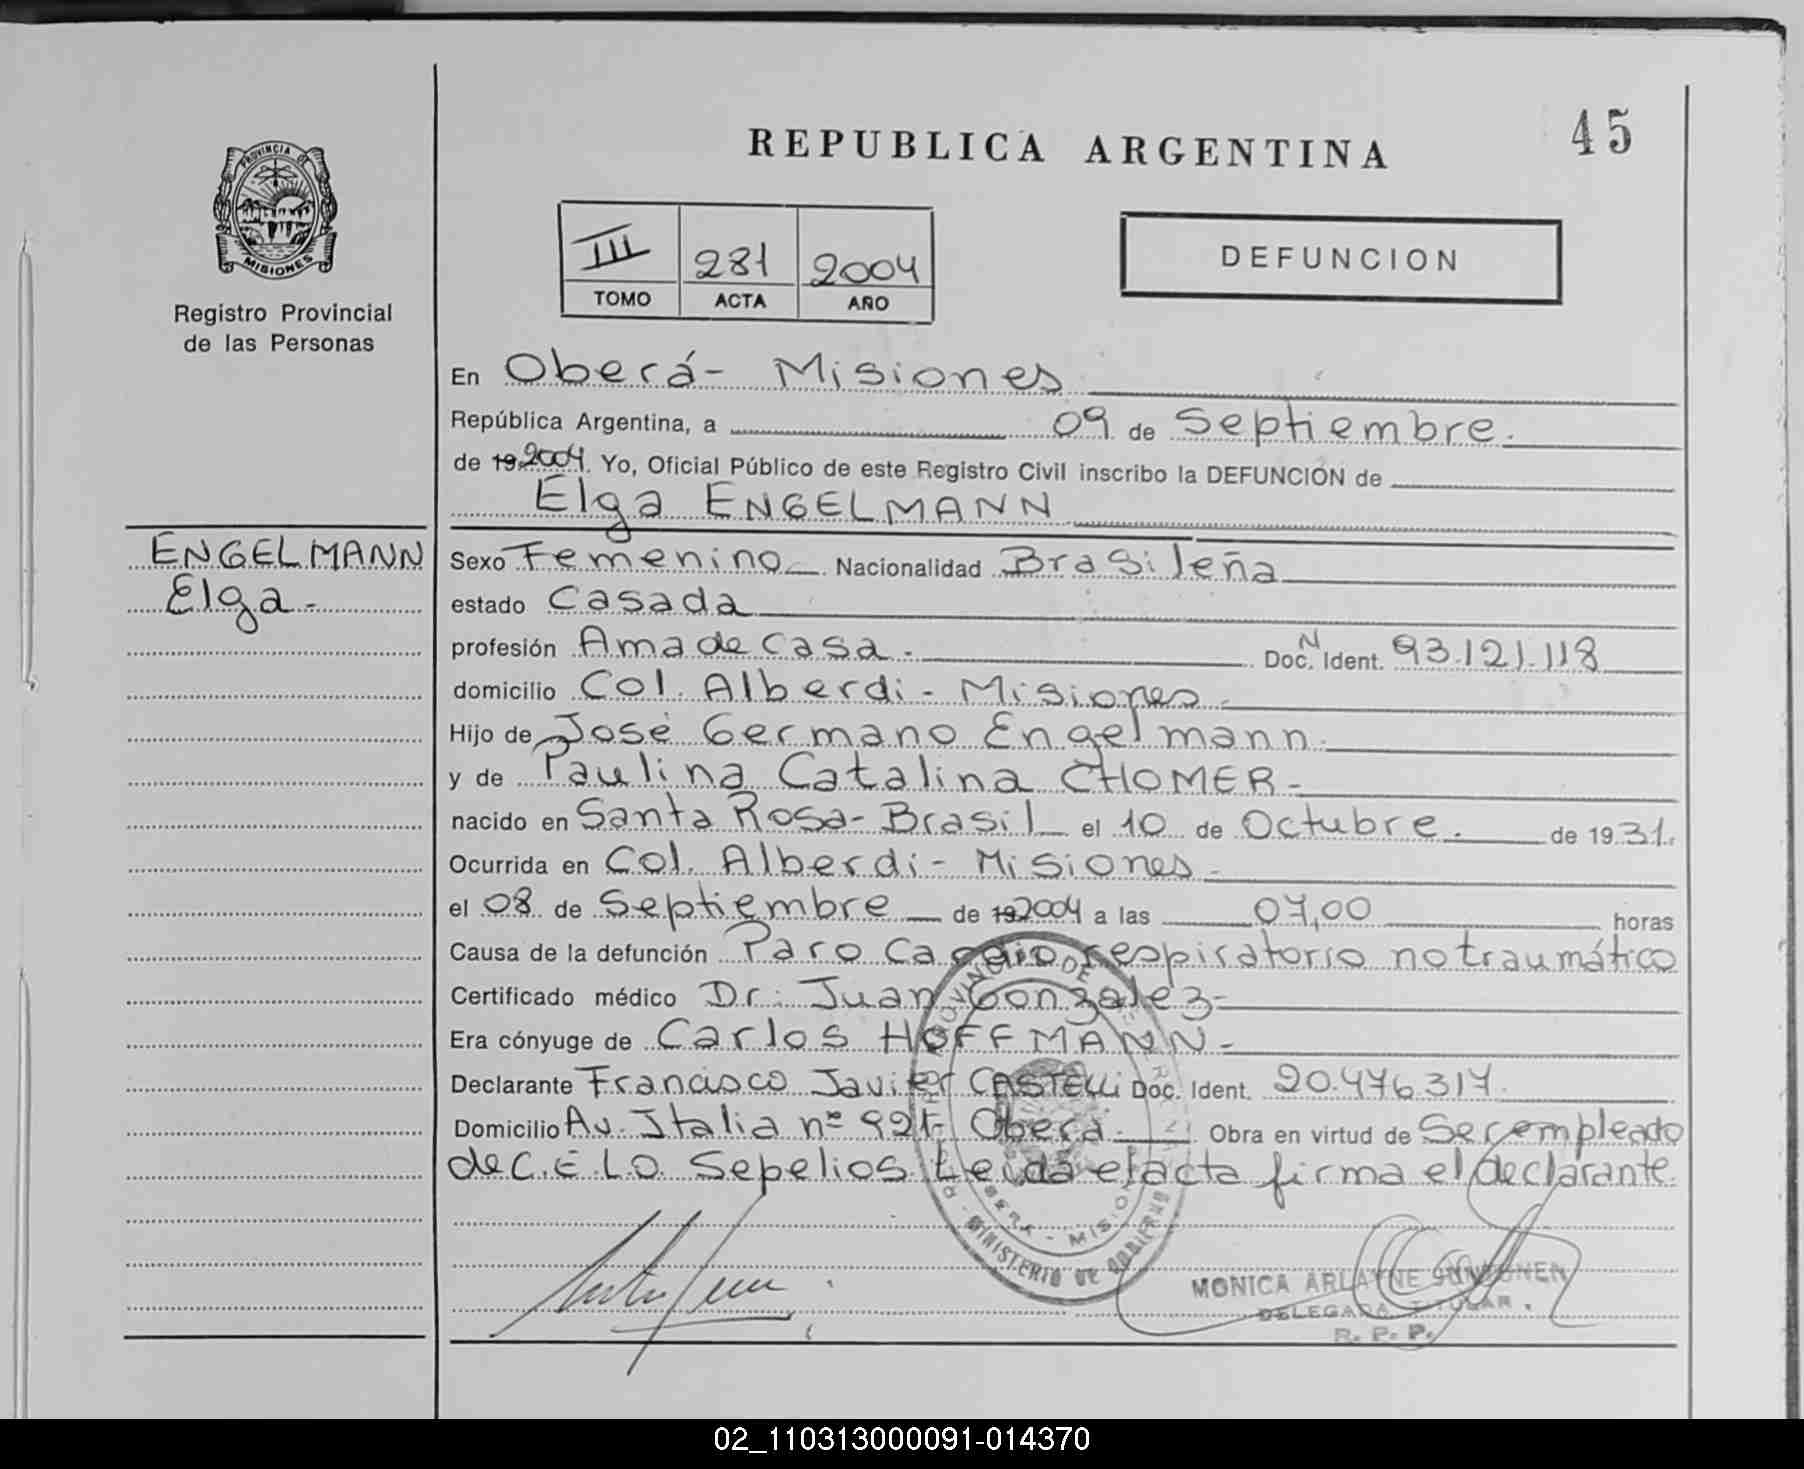 45
REPUBLICA ARGENTINA
PROVINCIA DE
MISIONES
III 281 2004
TOMO ACTA AÑO
DEFUNCION
Registro Provincial
de las Personas
En Oberá - Misiones
República Argentina, a 09 de Septiembre.
de 19 2004. Yo, Oficial Público de este Registro Civil inscribo la DEFUNCION de
Elga ENGELMANN
ENGELMANN
Elga -
Sexo Femenino Nacionalidad Brasileña
estado Casada
profesión Ama de casa. Doc. N Ident. 93.121.118
domicilio Col. Alberdi - Misiones -
Hijo de José Germano Engelmann.
y de Paulina Catalina CHOMER -
nacido en Santa Rosa - Brasil el 10 de Octubre. de 1931.
Ocurrida en Col. Alberdi - Misiones -
el 08 de Septiembre de 19 2004 a las 07,00 horas
Causa de la defunción Paro Cardio respiratorio no traumático
Certificado médico Dr. Juan Gonzalez -
Era cónyuge de Carlos HOFFMANN -
Declarante Francisco Javier CASTELLI Doc. Ident. 20.476.317.
Domicilio Av. Italia nº 921 - Oberá. Obra en virtud de Ser empleado
de C.E.L.O. Sepelios Leida el acta firma el declarante.
PROVINCIA DE
MINISTERIO DE GOBIERNO
MONICA ARLAYNE
DELEGADA TITULAR
R. P. P.
02_110313000091-014370